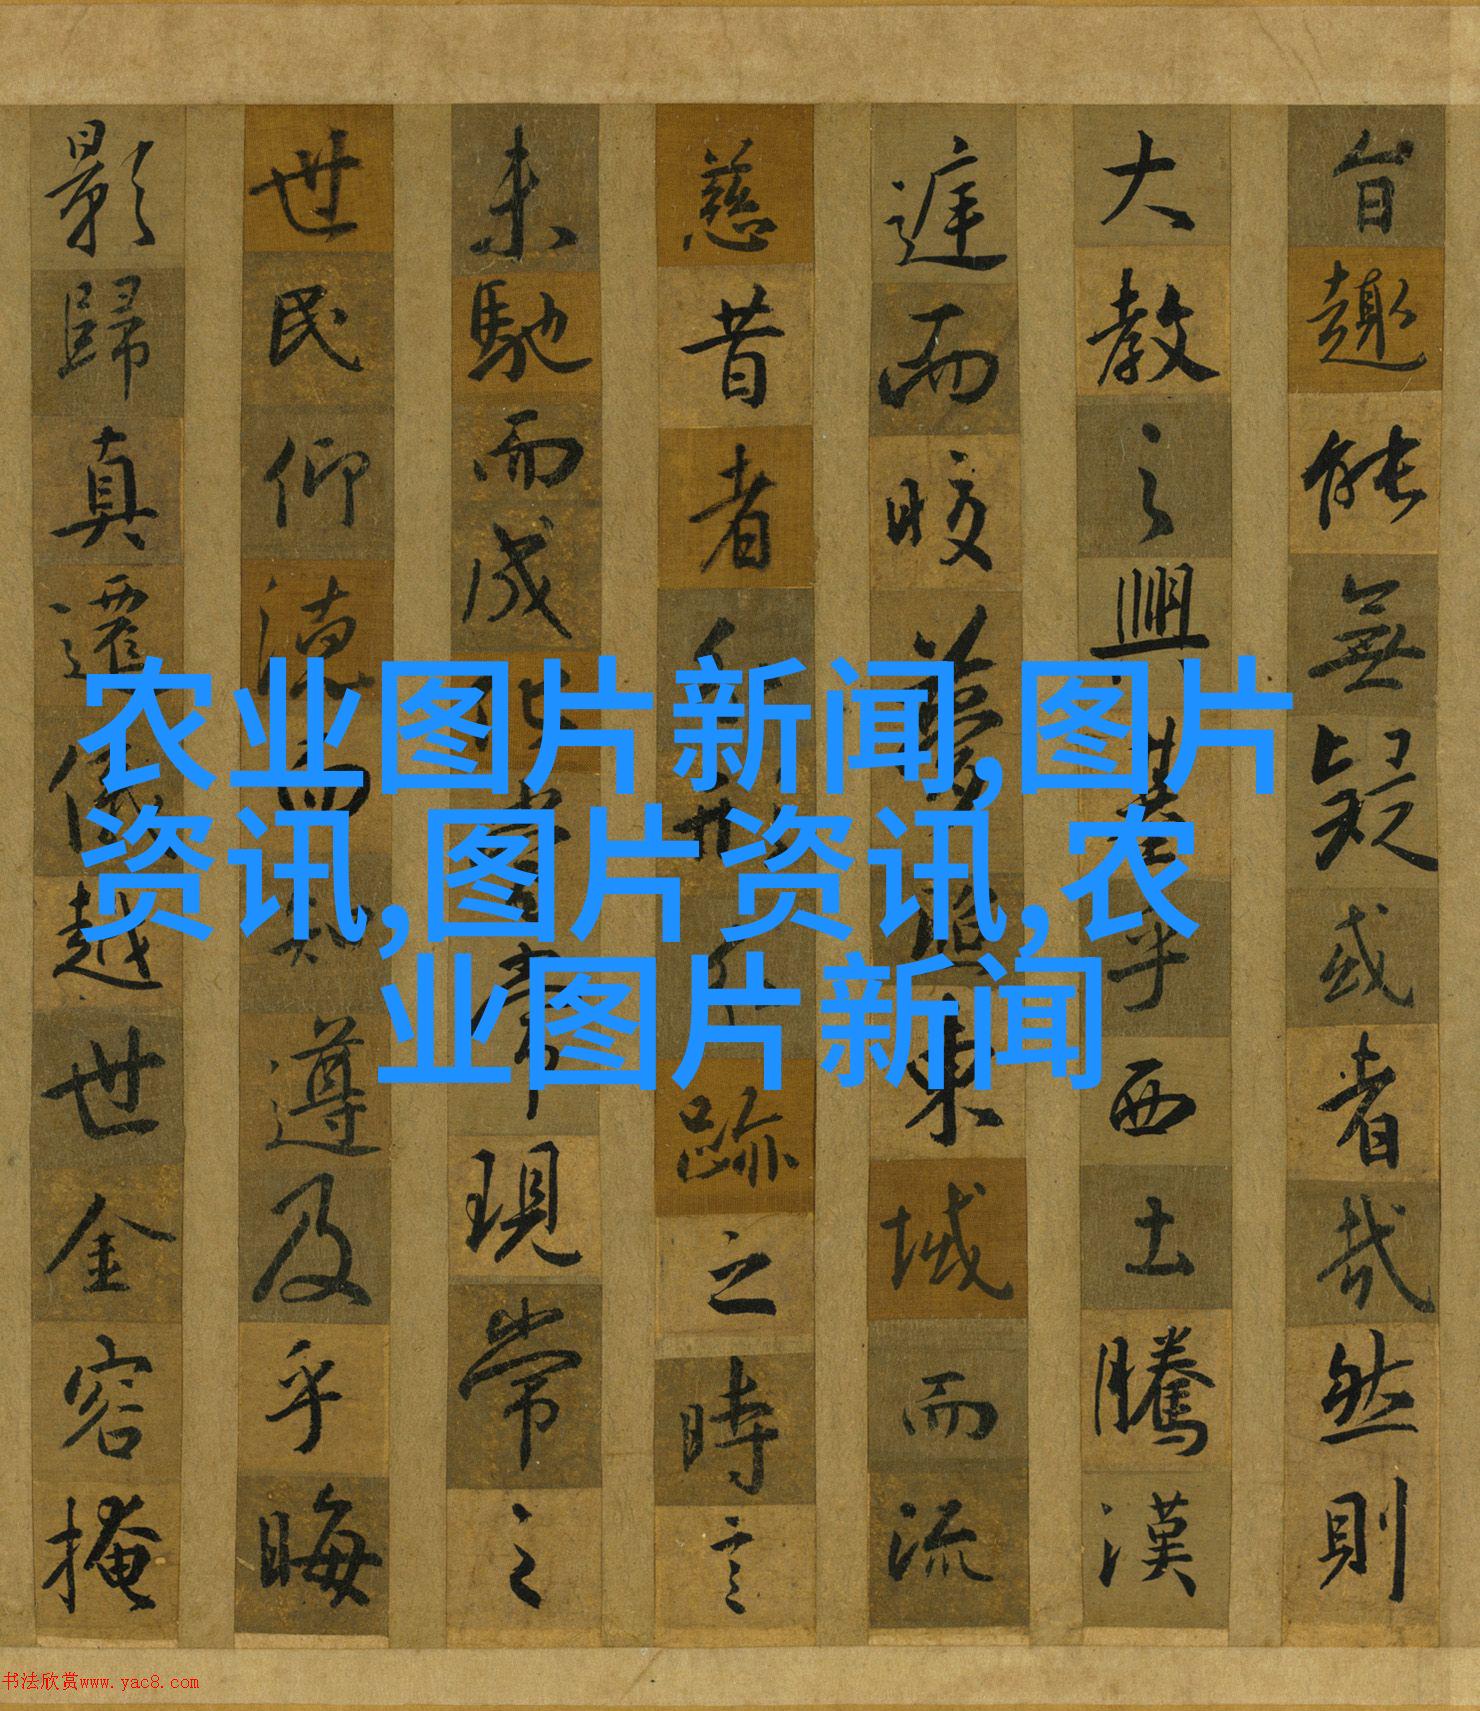 旨趣能無疑或者哉然則
大教之興基乎西土騰漢
庭而皎夢東域而流
慈昔者分形分跡之時言
未馳而成化當常現常之
世民仰德而知遵及乎晦
影歸真遷儀越世金容掩
农业图片新闻,图片
资讯,图片资讯,农
业图片新闻
书法欣赏www.yac8.com